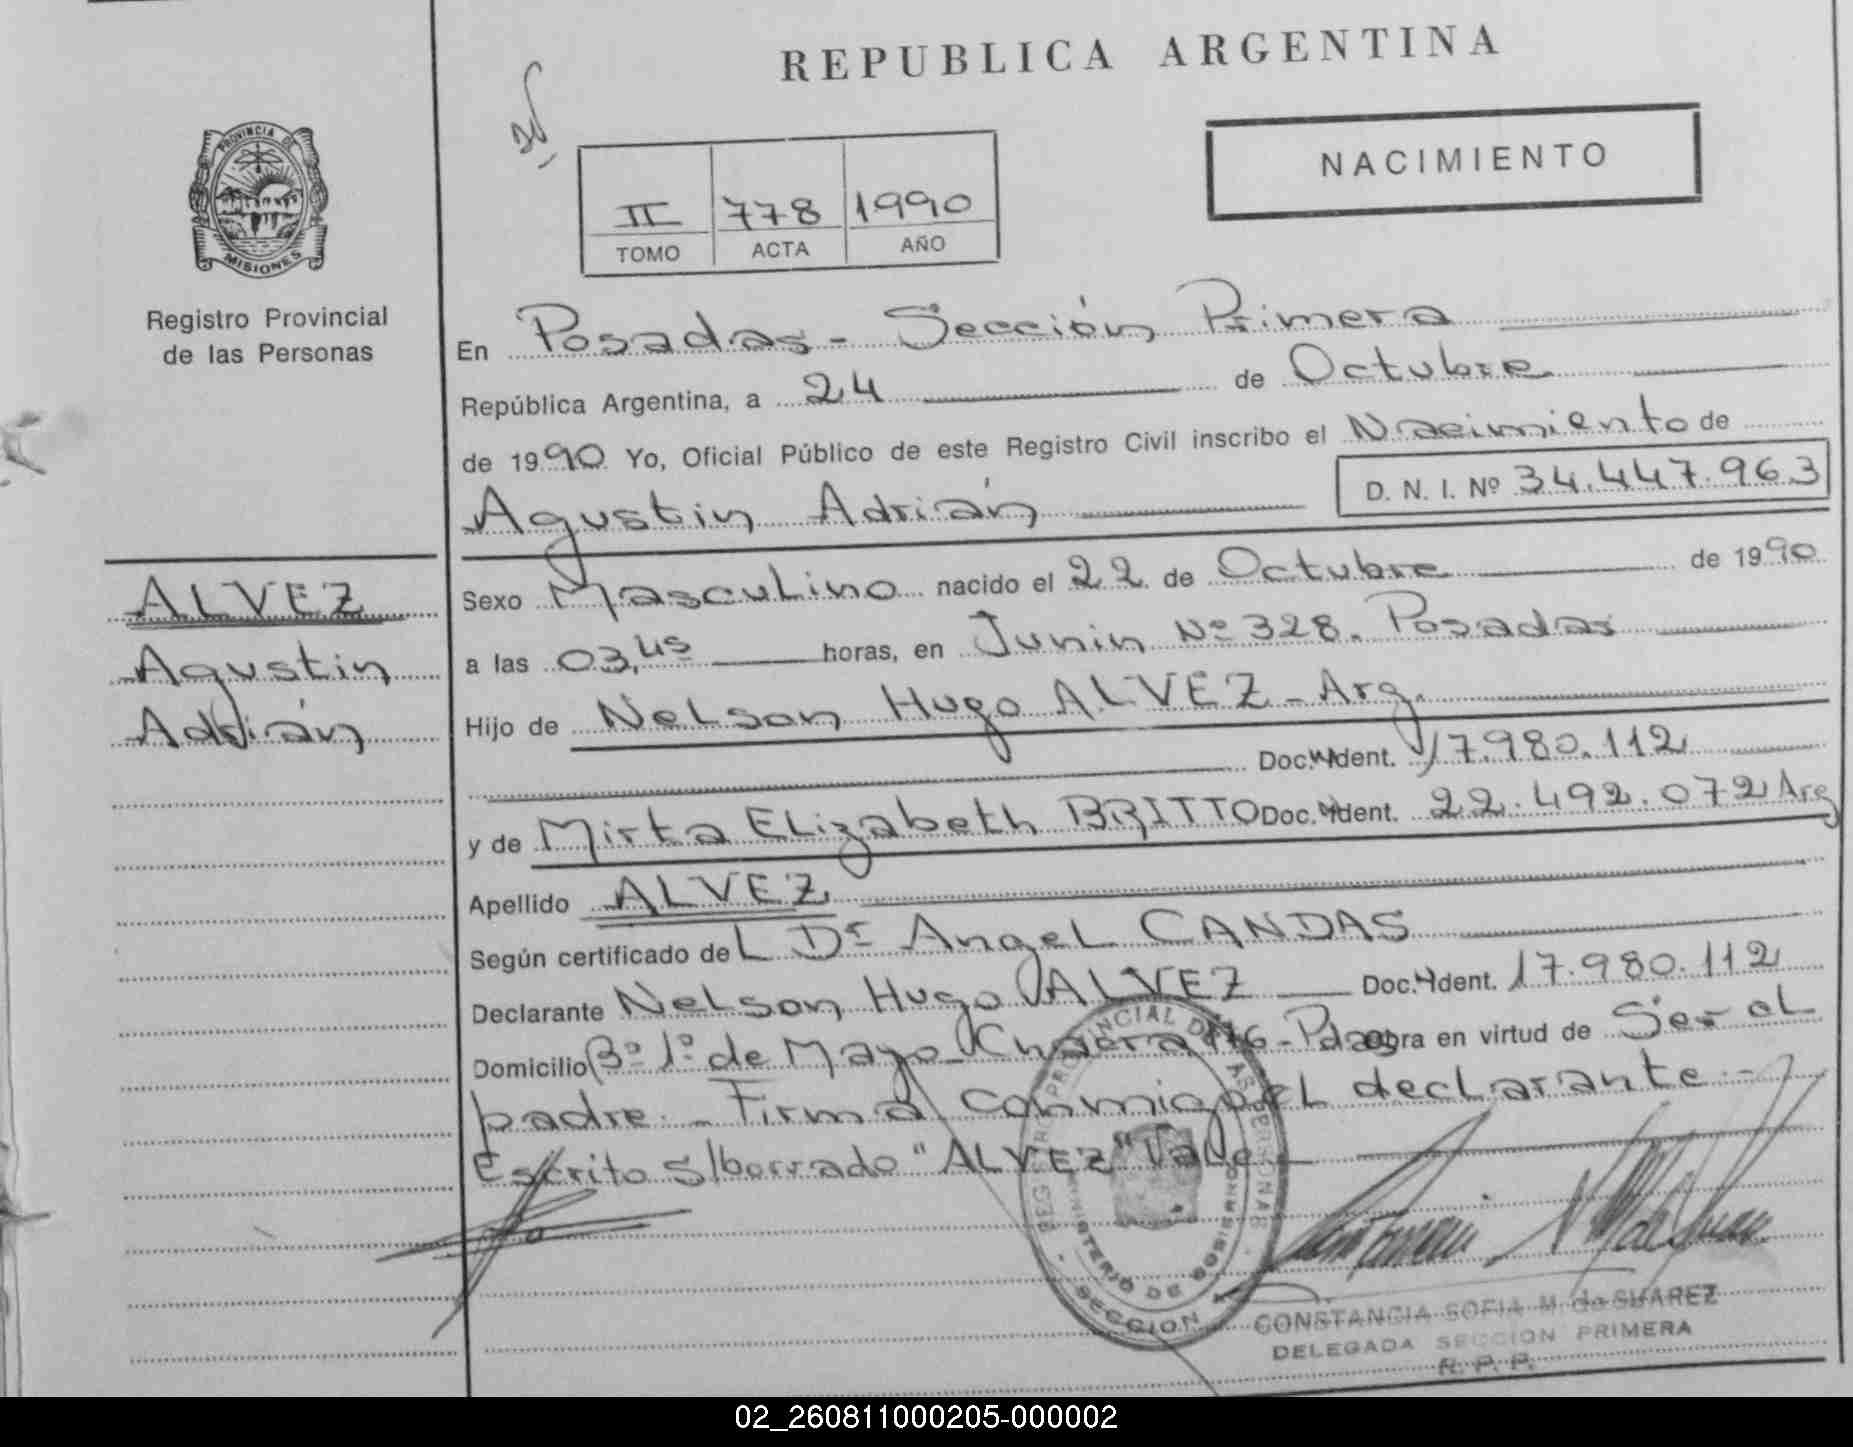 REPUBLICA ARGENTINA
PROVINCIA DE
MISIONES
Registro Provincial
de las Personas
NACIMIENTO
II 778 1990
TOMO ACTA AÑO
En Posadas - Sección Primera
República Argentina, a 24 de Octubre
de 1990 Yo, Oficial Público de este Registro Civil inscribo el Nacimiento de
Agustin Adrián D. N. I. Nº 34.447.963
ALVEZ
Agustin
Adrián
Sexo Masculino nacido el 22 de Octubre de 1990
a las 03,45 horas, en Junin Nº 328. Posadas
Hijo de Nelson Hugo ALVEZ - Arg.
Doc. Ident. 17.980.112
y de Mirta Elizabeth BRITTO Doc. Ident. 22.492.072 Arg
Apellido ALVEZ
Según certificado del Dr Angel CANDAS
Declarante Nelson Hugo ALVEZ Doc. Ident. 17.980.112
Domicilio Bº 1º de Mayo - Chacra 116 - Pdas obra en virtud de Ser el
padre - Firma conmigo el declarante -
Escrito s/borrado "ALVEZ" Vale
REGISTRO PROVINCIAL DE LAS PERSONAS
MINISTERIO DE GOBIERNO
- SECCION 1
CONSTANCIA SOFIA M. de SUAREZ
DELEGADA SECCION PRIMERA
R. P. P.
02_260811000205-000002